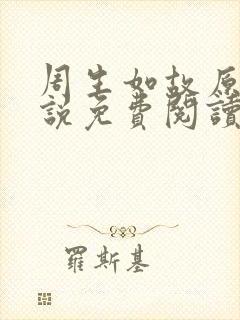 周生如故原
說免費閱讀
羅斯基